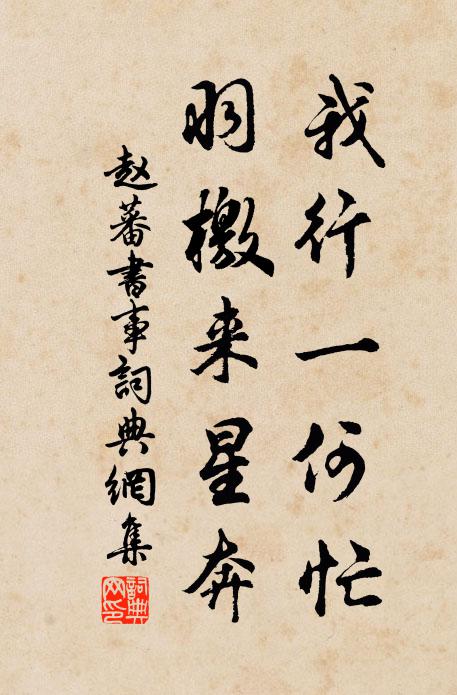 我行一何忙
羽檄来星奔
赵蕃書事詞典網集
詞典网印